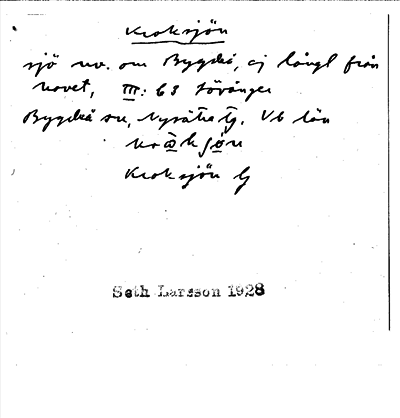 Kroksjön
sjö nv. om Bygdeå, ej långt från
havet, III: 63 Lövånger
Bygdeå sn, Nysätra tg. Vb län
Kroksjön
Seth Larsson 1928